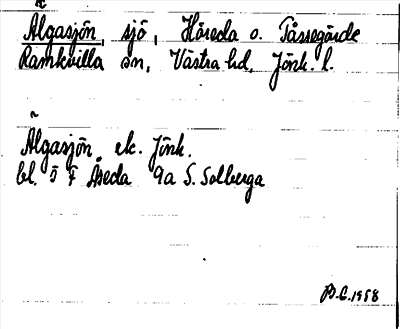 Älgasjön, sjö, Häreda o. Tåssegärde
Ramkvilla sn, Västra hd, Jönk. l.
Älgasjön ek. Jönk.
bl. 5 F Åseda 9a S. Solberga
B.E. 1958